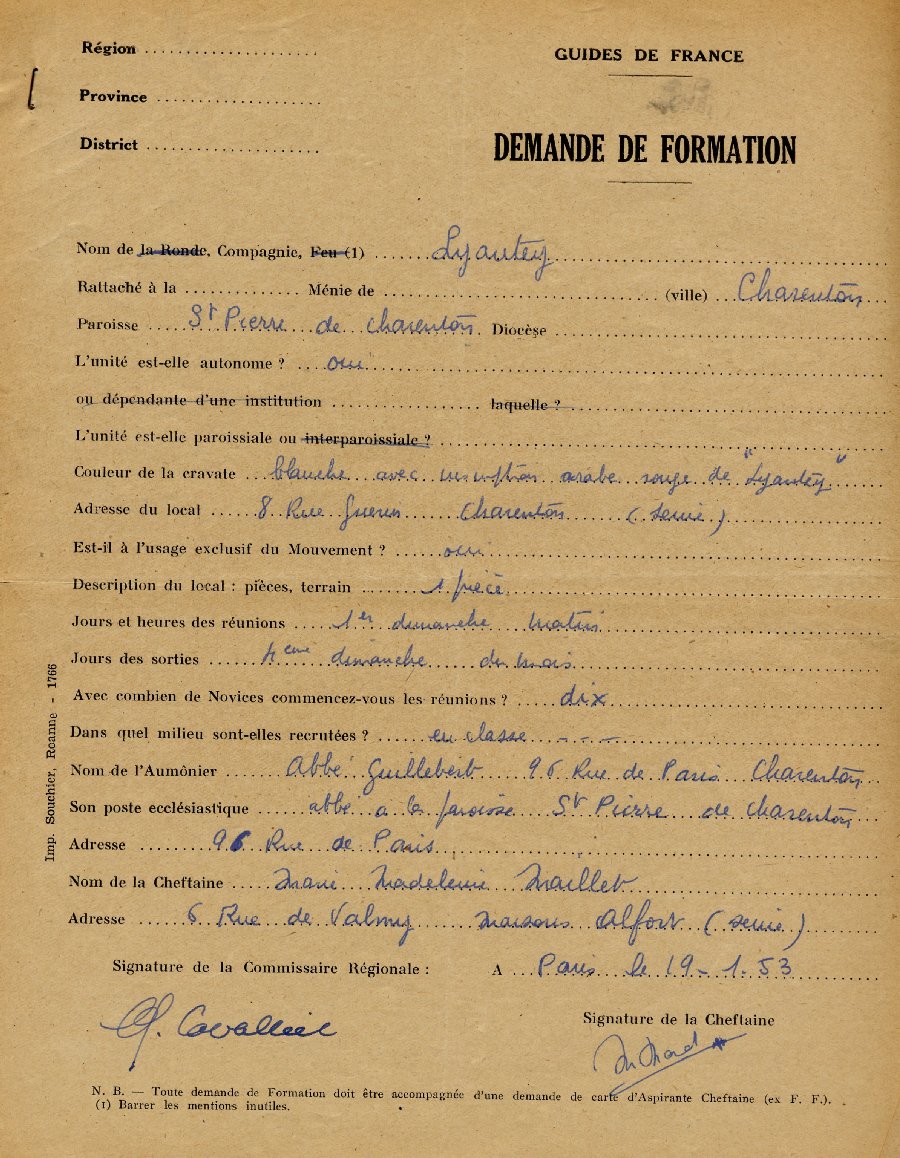 Région ....................
GUIDES DE FRANCE
Province ....................
District ....................
DEMANDE DE FORMATION
Nom de la Ronde, Compagnie, Feu (1) Lyautey
Rattaché à la .............. Ménie de .............................. (ville) Charenton
Paroisse St Pierre de Charenton Diocèse ..............................
L'unité est-elle autonome ? oui
ou dépendante d'une institution .................... laquelle ? ..............................
L'unité est-elle paroissiale ou interparoissiale ? ..............................
Couleur de la cravate blanche avec inscription arabe rouge de "Lyautey"
Adresse du local 8 Rue Charenton (Seine)
Est-il à l'usage exclusif du Mouvement ? oui
Description du local : pièces, terrain 1 pièce
Jours et heures des réunions 1er dimanche matin
Jours des sorties 4eme dimanche du mois
Avec combien de Novices commencez-vous les réunions ? dix
Dans quel milieu sont-elles recrutées ? en classe - - -
Nom de l'Aumônier Abbé Guillebert 96 Rue de Paris Charenton
Son poste ecclésiastique abbé a la paroisse St Pierre de Charenton
Adresse 96 Rue de Paris
Nom de la Cheftaine Marie Madeleine Maillet
Adresse 6 Rue de Valmy Maisons Alfort (Seine)
Signature de la Commissaire Régionale : A Paris le 19-1.53
Cavallier
Signature de la Cheftaine
N. B. — Toute demande de Formation doit être accompagnée d'une demande de carte d'Aspirante Cheftaine (ex F. F.).
(1) Barrer les mentions inutiles.
Imp. Souchier, Roanne - 1766